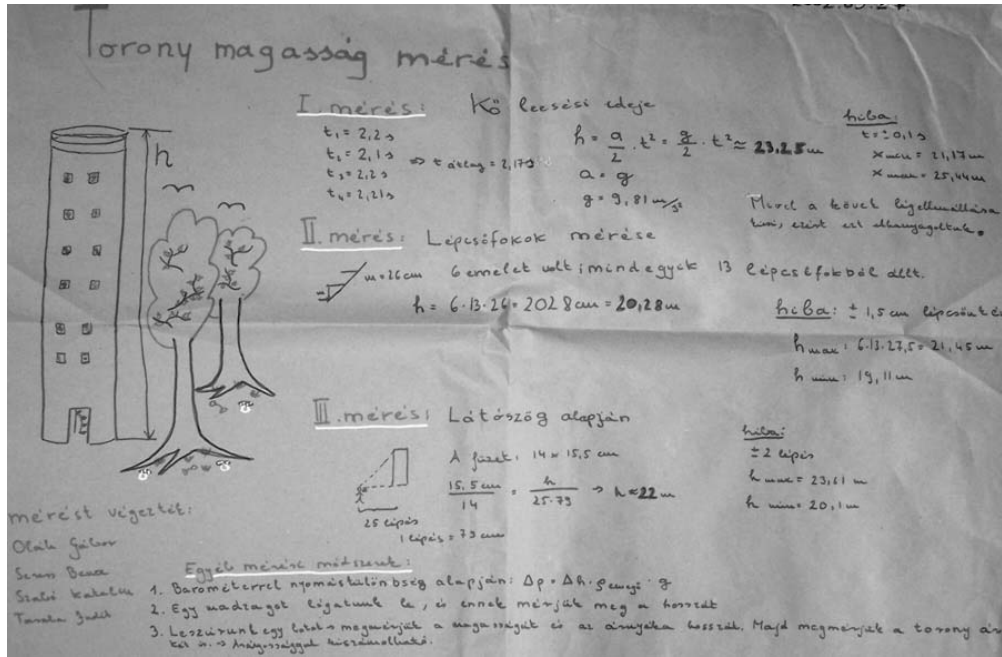 Torony magasság mérés
I. mérés: Kő leesési ideje
t₁ = 2,2 s
t₁ = 2,1 s
t₃ = 2,2 s
t₄ = 2,21 s
⇒ t átlag = 2,17 s
h = a/2 · t² = g/2 · t² ≈ 23,25 m
a = g
g = 9,81 m/s²
hiba:
t = ± 0,1 s
x min = 21,17 m
x max = 25,44 m
Mivel a követ légellenállása
kicsi, ezért ezt elhanyagoltuk.
h
II. mérés: Lépcsőfokok mérése
m = 26 cm 6 emelet volt; mindegyik 13 lépcsőfokból állt.
m
h = 6·13·26 = 2028 cm = 20,28 m
hiba: ± 1,5 cm
h max: 6·13·27,5 = 21,45 m
h min: 19,11 m
III. mérés: Látószög alapján
A füzet: 14 × 15,5 cm
15,5 cm / 14 = h / 25·79 → h ≈ 22 m
25 lépés
1 lépés = 79 cm
hiba:
± 2 lépés
h max = 23,61 m
h min = 20,1 m
mérést végezték:
Oláh Gábor
Szabó Katalin
Judit
Egyéb mérési módszerek:
1. Barométerrel nyomáskülönbség alapján: Δp = Δh · ρ levegő · g
2. Egy madzagot lógatunk le, és ennek mérjük meg a hosszát
3. Leszúrunk egy botot → megmérjük a magasságát és az árnyéka hosszát. Majd megmérjük a torony ár
két is. → Arányossággal kiszámolható.